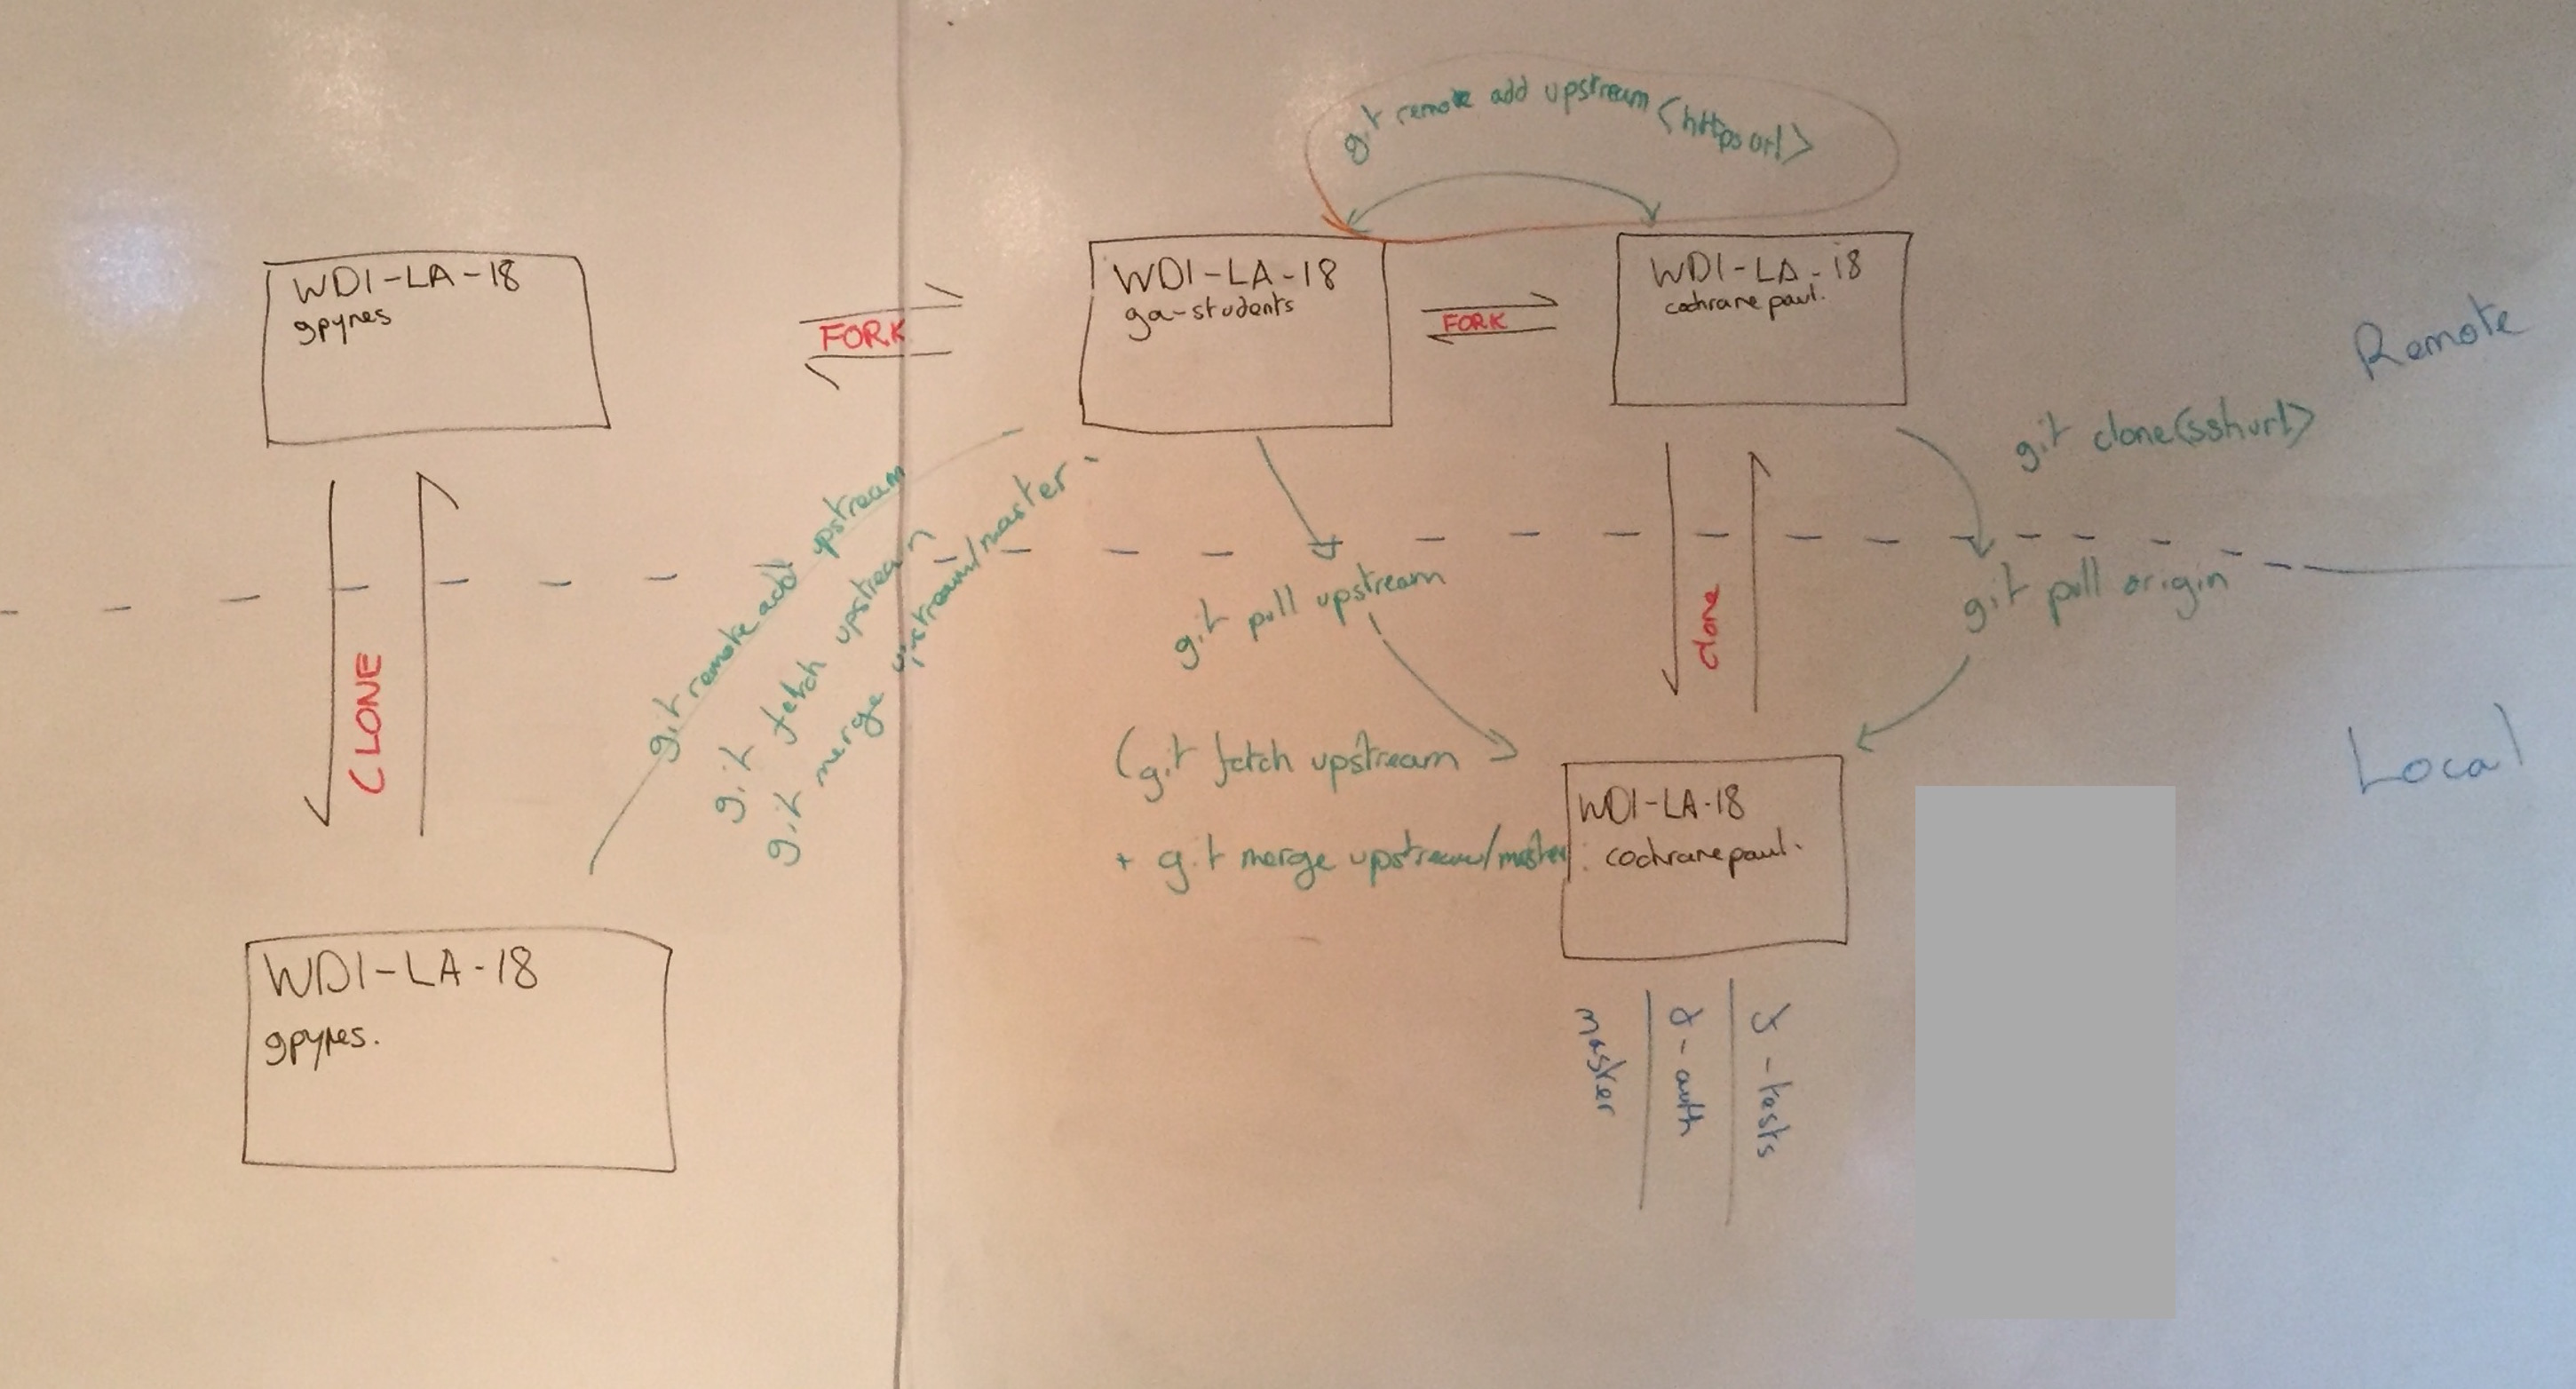 git remote add upstream <https url>
WDI-LA-18
gpynes
FORK
WDI-LA-18
ga-students
FORK
WDI-LA-18
cochranepaul.
Remote
git clone <ssh url>
CLONE
git remote add upstream
git fetch upstream
git merge upstream/master
git pull upstream
clone
git pull origin
(git fetch upstream
+ git merge upstream/master
Local
WDI-LA-18
cochranepaul.
WDI-LA-18
gpynes.
master
-auth
-tests